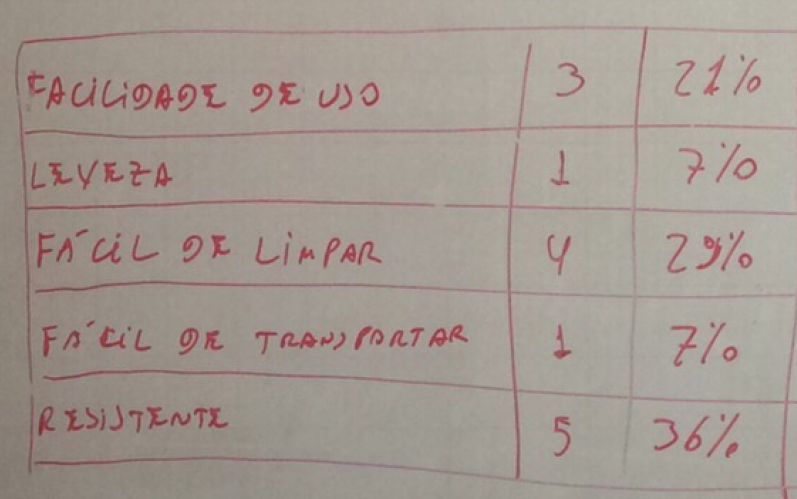 FACILIDADE DE USO 3 21%
LEVEZA 1 7%
FÁCIL DE LIMPAR 4 29%
FÁCIL DE TRANSPORTAR 1 7%
RESISTENTE 5 36%